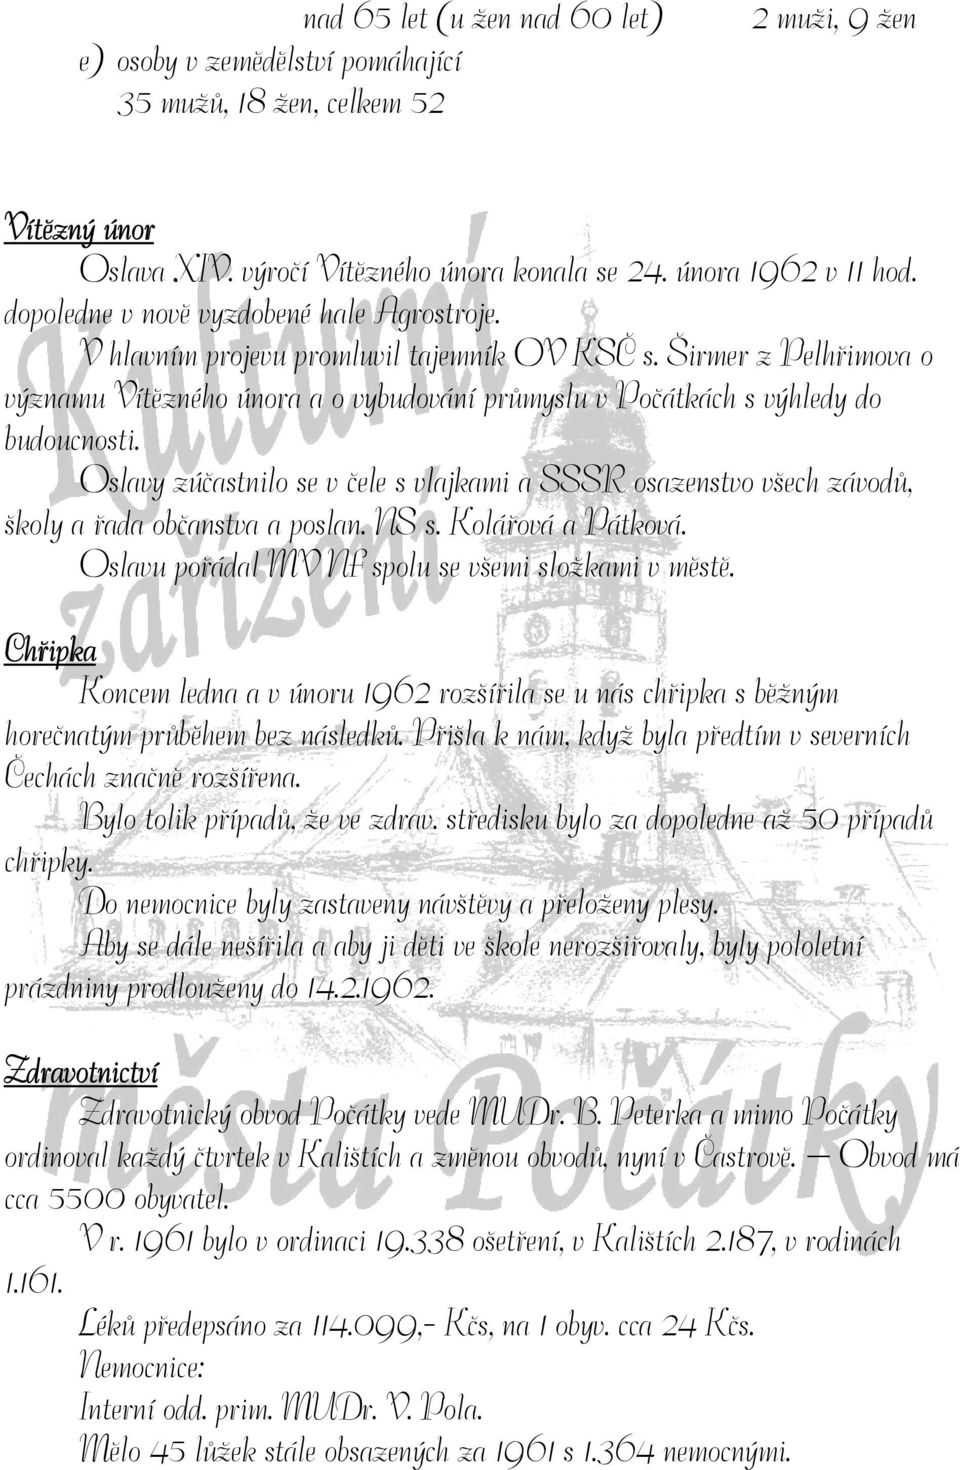 nad 65 let (u žen nad 60 let) 2 muži, 9 žen
e) osoby v zemědělství pomáhající
35 mužů, 18 žen, celkem 52
Vítězný únor
Oslava XIV. výročí Vítězného února konala se 24. února 1962 v 11 hod.
dopoledne v nově vyzdobené hale Agrostroje.
V hlavním projevu promluvil tajemník OV KSČ s. Širmer z Pelhřimova o
významu Vítězného února a o vybudování průmyslu v Počátkách s výhledy do
budoucnosti.
Oslavy zúčastnilo se v čele s vlajkami a SSSR osazenstvo všech závodů,
školy a řada občanstva a poslan. NS s. Kolářová a Pátková.
Oslavu pořádal MV NF spolu se všemi složkami v městě.
Chřipka
Koncem ledna a v únoru 1962 rozšířila se u nás chřipka s běžným
horečnatým průběhem bez následků. Přišla k nám, když byla předtím v severních
Čechách značně rozšířena.
Bylo tolik případů, že ve zdrav. středisku bylo za dopoledne až 50 případů
chřipky.
Do nemocnice byly zastaveny návštěvy a přeloženy plesy.
Aby se dále nešířila a aby ji děti ve škole nerozšiřovaly, byly pololetní
prázdniny prodlouženy do 14.2.1962.
Zdravotnictví
Zdravotnický obvod Počátky vede MUDr. B. Peterka a mimo Počátky
ordinoval každý čtvrtek v Kalištích a změnou obvodů, nyní v Častrově. – Obvod má
cca 5500 obyvatel.
V r. 1961 bylo v ordinaci 19.338 ošetření, v Kalištích 2.187, v rodinách
1.161.
Léků předepsáno za 114.099,- Kčs, na 1 obyv. cca 24 Kčs.
Nemocnice:
Interní odd. prim. MUDr. V. Pola.
Mělo 45 lůžek stále obsazených za 1961 s 1.364 nemocnými.
Kulturní
zařízení
města Počátky